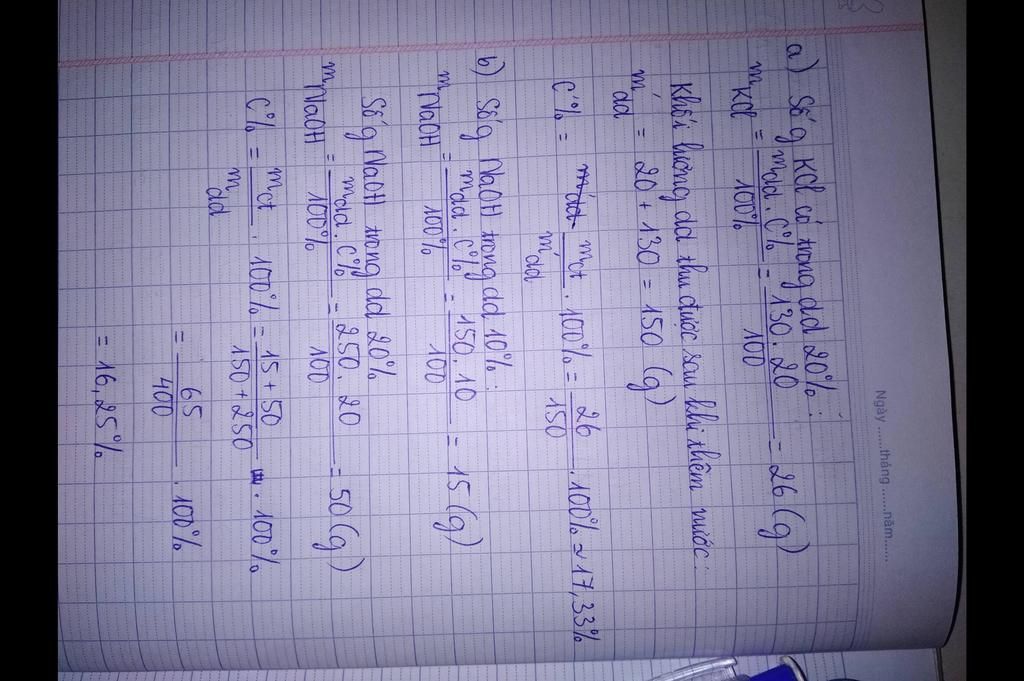 Ngày ...... tháng ...... năm ......
a) Số g KCl có trong dd 20% :
mKCl = mdd . C% / 100% = 130 . 20 / 100 = 26 (g)
Khối lượng dd thu được sau khi thêm nước :
m'dd = 20 + 130 = 150 (g)
C'% = mct / m'dd . 100% = 26 / 150 . 100% ≈ 17,33%
b) Số g NaOH trong dd 10% :
mNaOH = mdd . C% / 100% = 150 . 10 / 100 = 15 (g)
Số g NaOH trong dd 20%
mNaOH = mdd . C% / 100% = 250 . 20 / 100 = 50 (g)
C% = mct / mdd . 100% = 15 + 50 / 150 + 250 . 100%
= 65 / 400 . 100%
= 16,25%